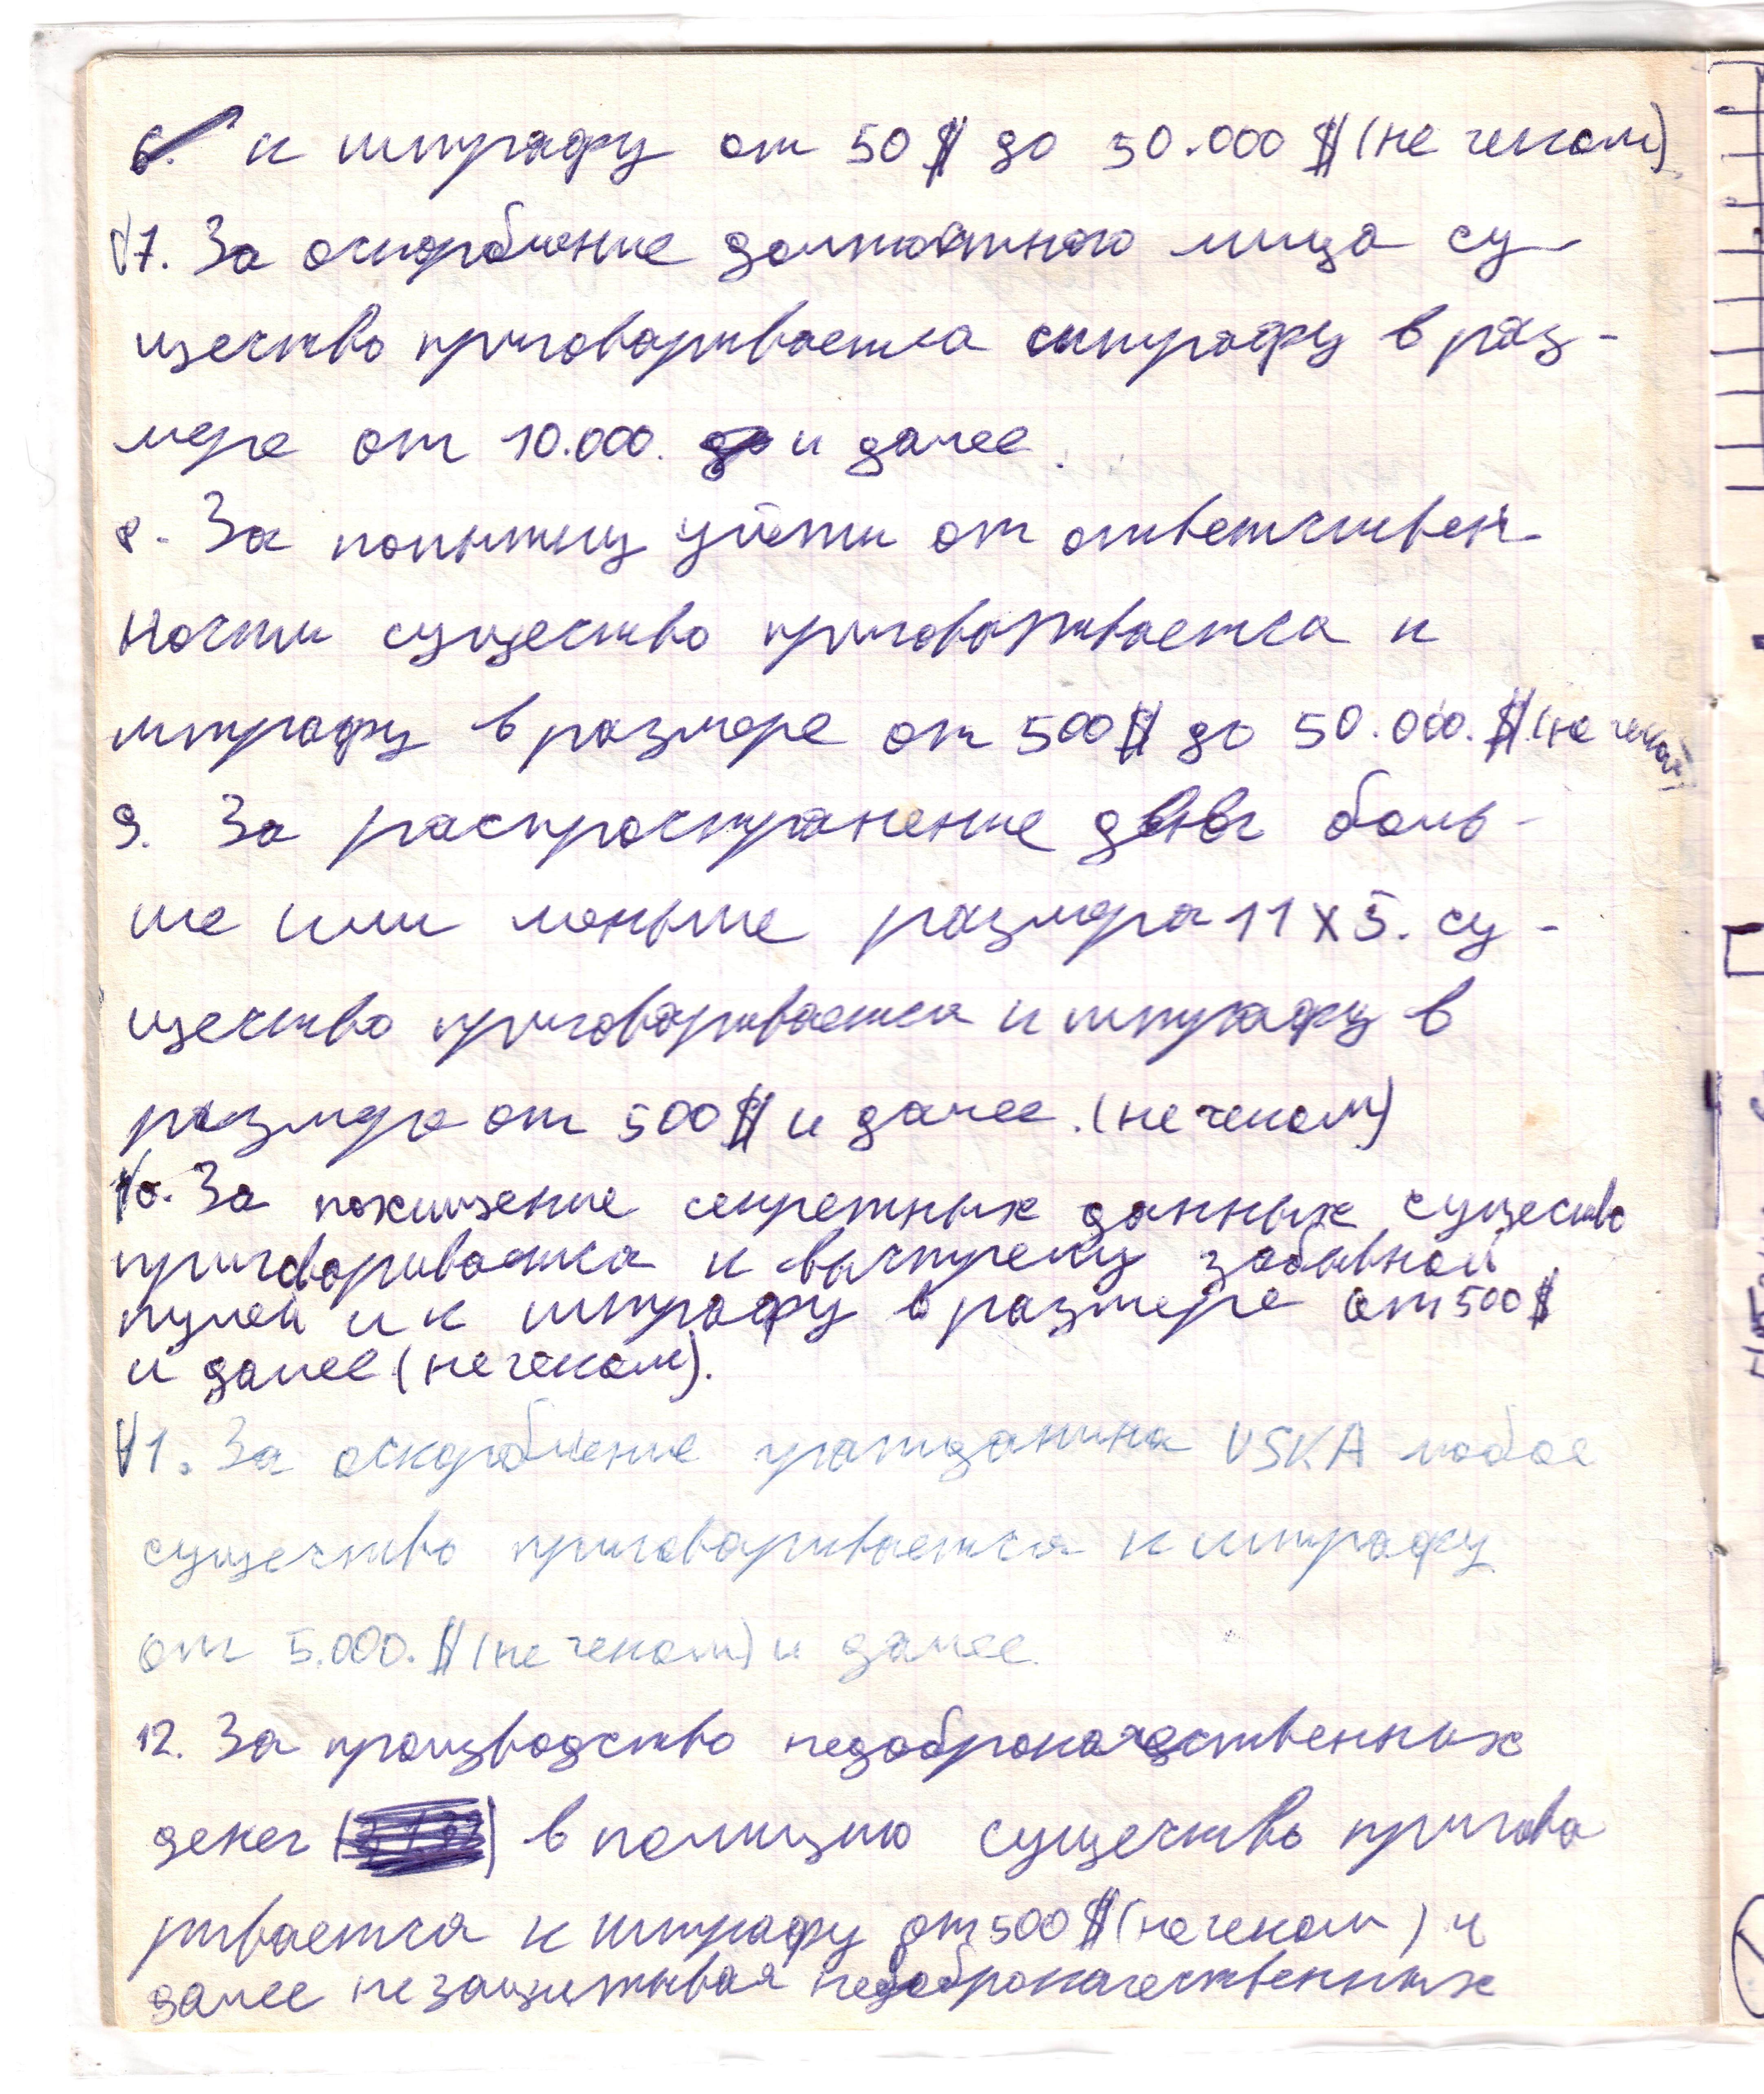 6. к штрафу от 50$ до 50.000$ (не чеком)
√7. За оскорбление должностного лица су-
щество приговаривается с штрафу в раз-
мере от 10.000. и далее.
8. За попытку уйти от ответствен
ности существо приговаривается к
штрафу в размере от 500$ до 50.000.$ (не чеком)
9. За распространение денег боль-
ше или меньше размера 11х5. су-
щество приговаривается к штрафу в
размере от 500$ и далее. (не чеком)
10. За похищение секретных данных существо
приговаривается к выстрелу забавной
пулей и к штрафу в размере от 500$
и далее (не чеком).
11. За оскорбление гражданина USKA любое
существо приговаривается к штрафу
от 5.000.$ (не чеком) и далее.
12. За производство недоброкачественных
денег ( ) в полицию существо пригова
ривается к штрафу от 500$ (не чеком) и
далее не защитывая недоброкачественных